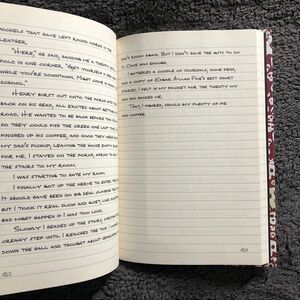 nickels that have left round marks in the
leather.
"Here," he said, handing me a twenty
old in one corner. "Get yourself a new
while you're downtown. Meet Come
Henry burst out onto the porch with the
back on his head, all excited about getting
road. He wanted to be back before the
so they could fish the creek one last
finished up his coffee, and soon they were
my dad's pickup, leaving the house empty
for me. I stayed on the porch, afraid to
the stairs to my room.
I was starting to hate my room.
I finally got up the nerve to enter the
It should have been no big deal climbing
but I took it real slow and quiet, like
bad might happen if I was too loud.
Slowly I headed up the stairs,
creaky step until I reached the top. I
down the hall and thought about sneaking
152
dad's room again. But I didn't have the guts to do
it. Once was enough.
I gathered a couple of journals, some pens,
and a copy of Edgar Allan Poe's best short
stories. I felt in my pocket for the twenty my
dad had handed me.
That, I figured, would buy plenty of pie
and coffee.
153